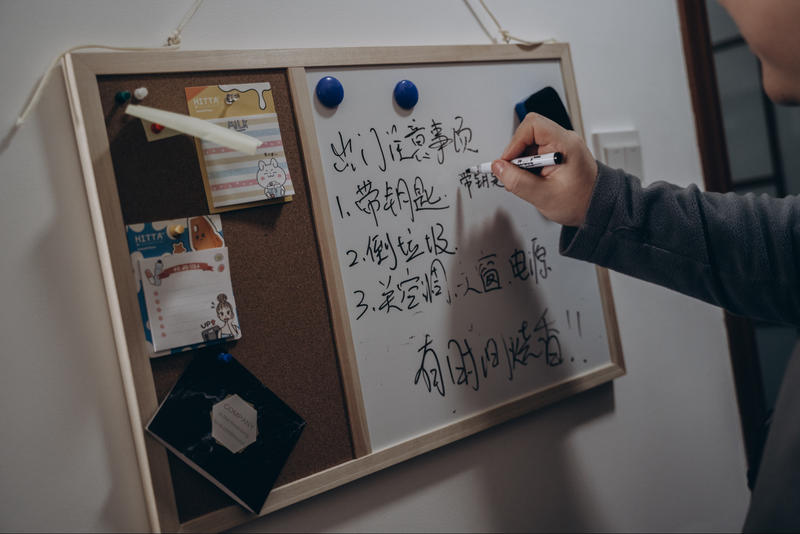 出门注意事项
1.带钥匙.
带钥匙
2.倒垃圾.
3.关空调.火窗.电源
有时间烧香!!
HITTA
MILK
HITTA
UP
COMPANY